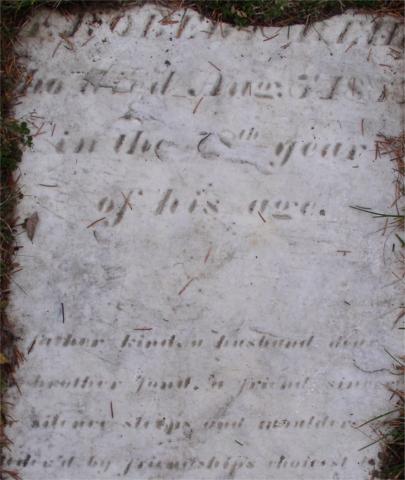 ho died Aug: 5 18
in the th year
of his age.
father kind, a husband dear
brother fond, a friend since
silence sleeps and moulder
by friendships choicest